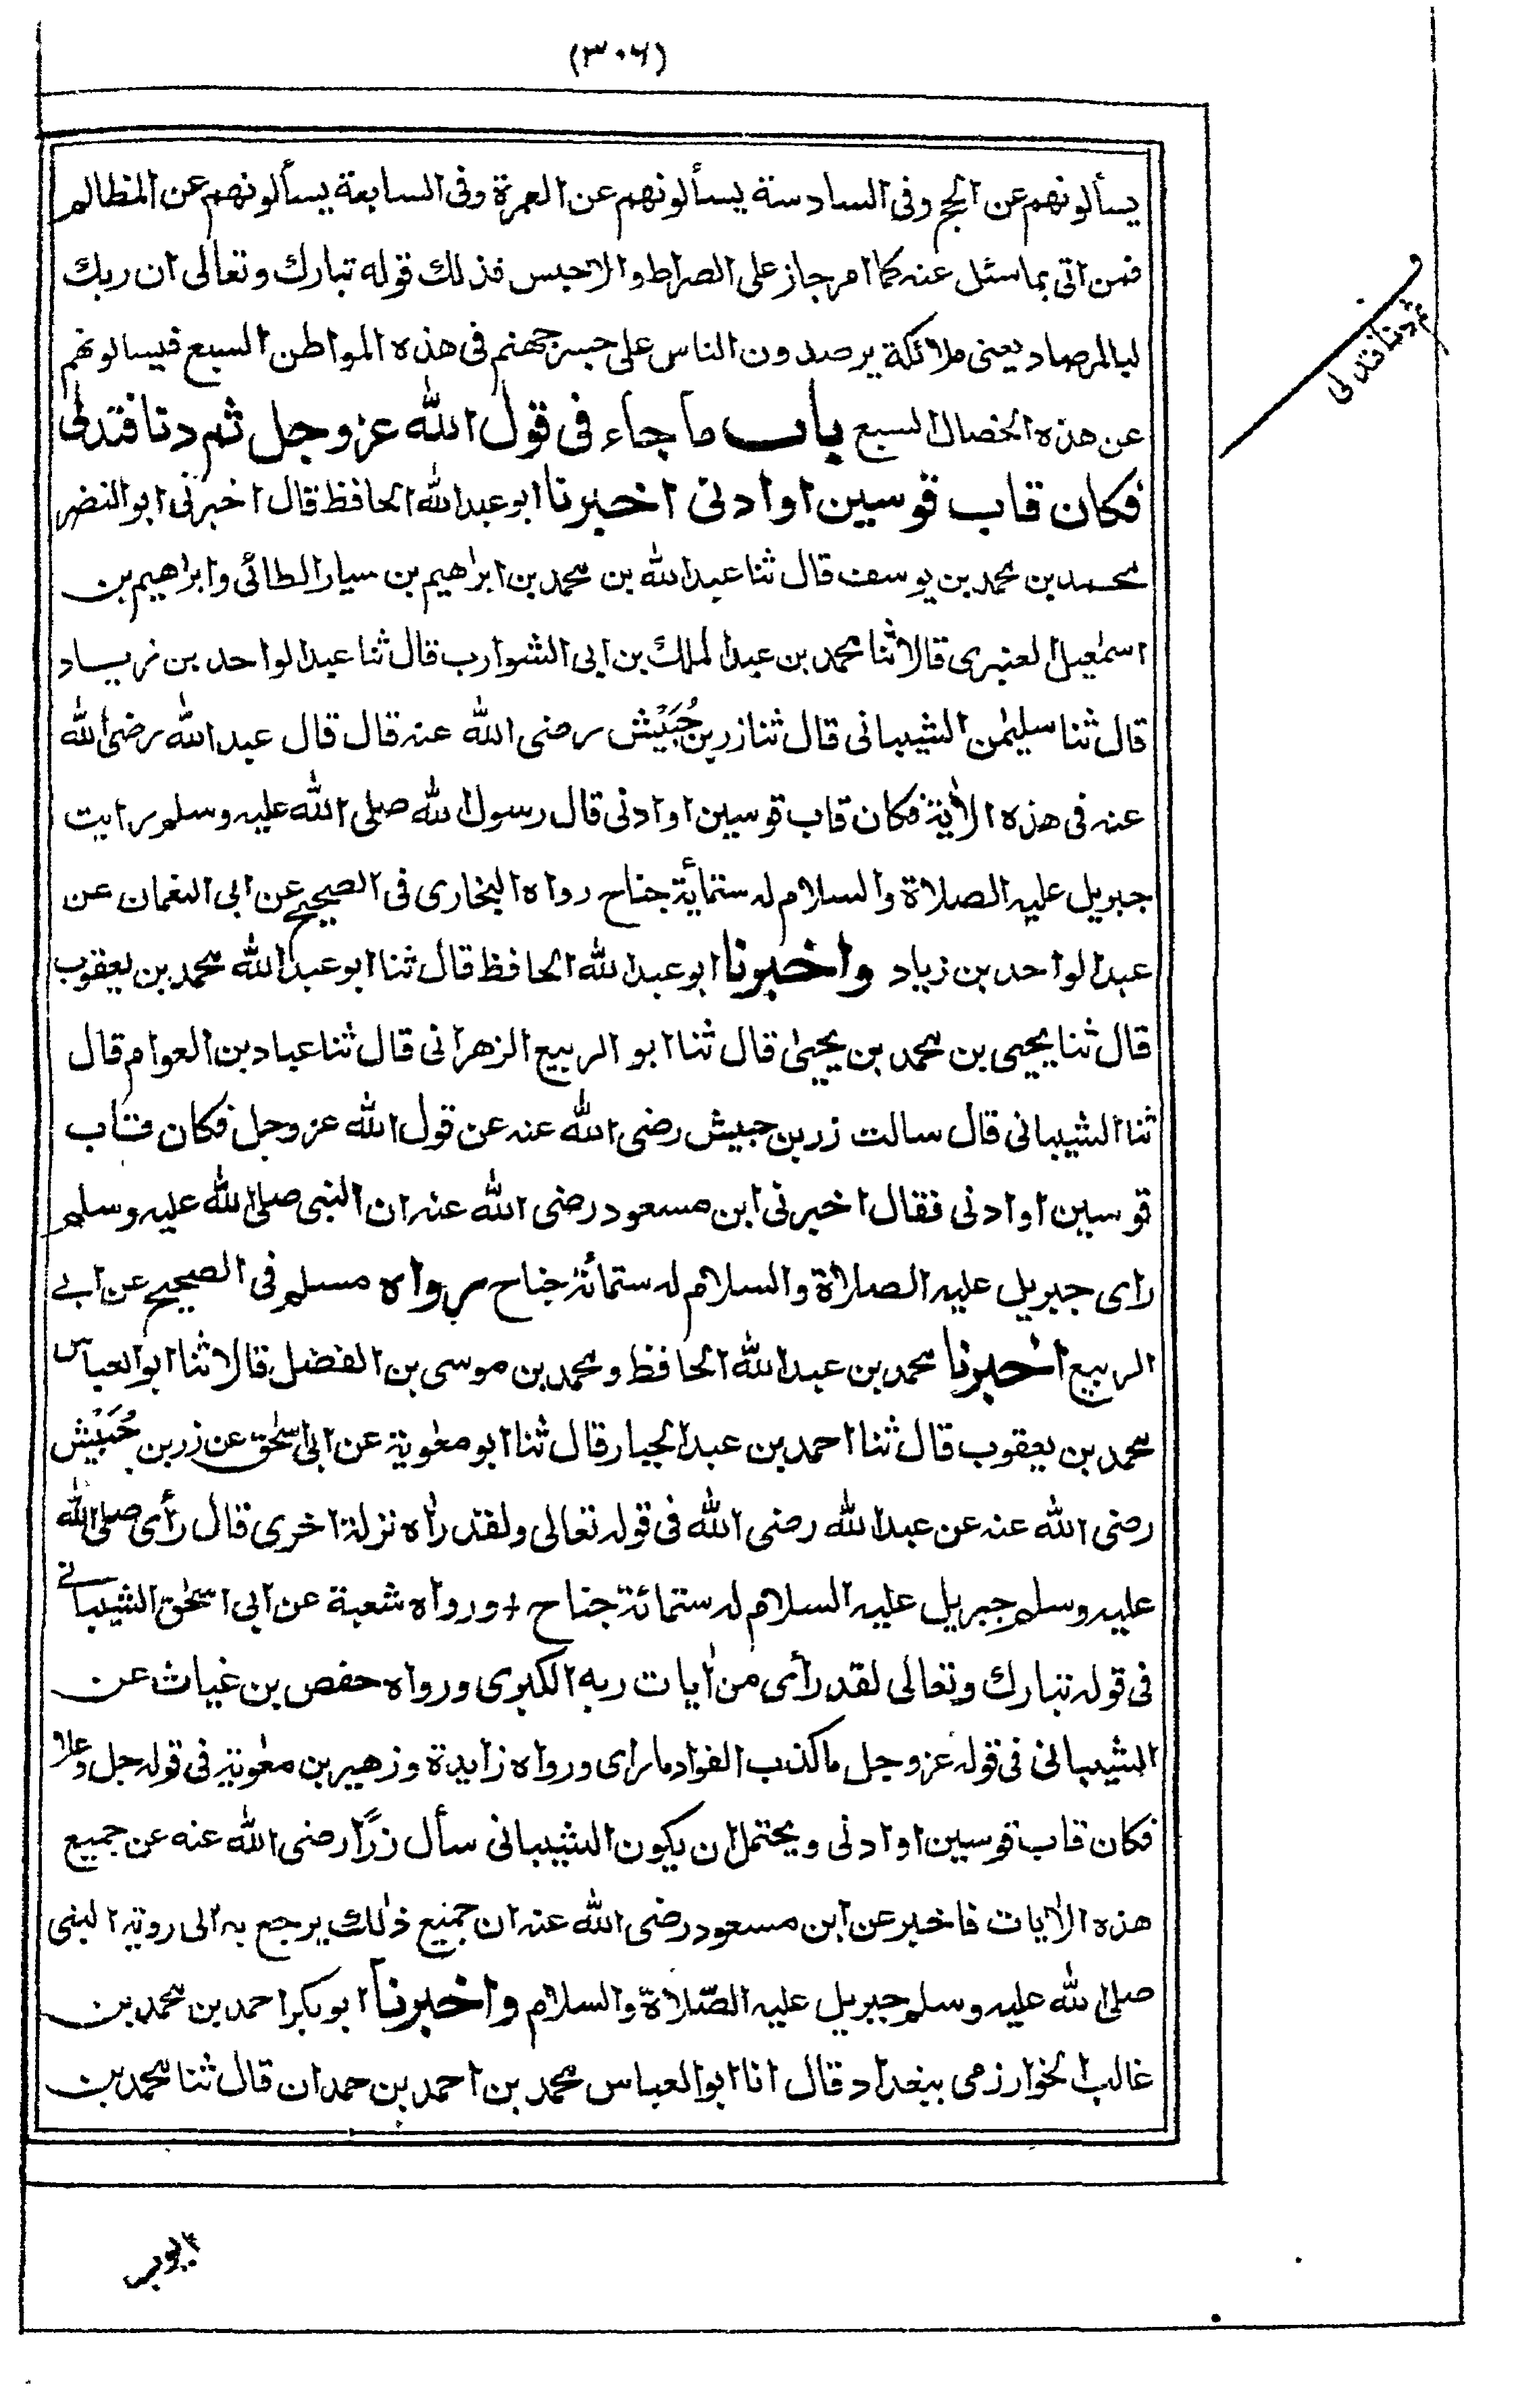 (٣٠٦)
يسألونهم عن الحج وفى السادسة يسألونهم عن العمرة وفى السابعة يسألونهم عن المظالم
فمن اتى بما سئل عنه كما امر جاز على الصراط والا حبس فذلك قوله تبارك وتعالى ان ربك
لبالمرصاد يعنى ملائكة يرصدون الناس على جسر جهنم فى هذه المواطن السبع فيسالونهم
عن هذه الخصال السبع باب ما جاء فى قول الله عز وجل ثم دنا فتدلى
فكان قاب قوسين او ادنى اخبرنا ابو عبد الله الحافظ قال اخبرنى ابو النضر
محمد بن محمد بن يوسف قال ثنا عبد الله بن محمد بن ابراهيم بن سيار الطائى وابراهيم بن
اسمٰعيل العنبرى قالا ثنا محمد بن عبد الملك بن ابى الشوارب قال ثنا عبد الواحد بن زياد
قال ثنا سليمٰن الشيبانى قال ثنا زر بن حُبَيْش رضى الله عنه قال قال عبد الله رضى الله
عنه فى هذه الاٰية فكان قاب قوسين او ادنى قال رسول الله صلى الله عليه وسلم رايت
جبريل عليه الصلاة والسلام له ستماية جناح رواه البخارى فى الصحيح عن ابى النعمان عن
عبد الواحد بن زياد واخبرنا ابو عبد الله الحافظ قال ثنا ابو عبد الله محمد بن يعقوب
قال ثنا يحيى بن محمد بن يحيىٰ قال ثنا ابو الربيع الزهرانى قال ثنا عباد بن العوام قال
ثنا الشيبانى قال سالت زر بن حبيش رضى الله عنه عن قول الله عز وجل فكان قاب
قوسين او ادنى فقال اخبرنى ابن مسعود رضى الله عنه ان النبى صلى الله عليه وسلم
راى جبريل عليه الصلاة والسلام له ستمائة جناح رواه مسلم فى الصحيح عن ابى
الربيع اخبرنا محمد بن عبد الله الحافظ ومحمد بن موسى بن الفضل قالا ثنا ابو العباس
محمد بن يعقوب قال ثنا احمد بن عبد الجبار قال ثنا ابو معٰوية عن ابى اسحٰق عن زر بن حُبَيْش
رضى الله عنه عن عبد الله رضى الله فى قوله تعالى ولقد راٰه نزلة اخرى قال رأى صلى الله
عليه وسلم جبريل عليه السلام له ستمائة جناح + ورواه شعبة عن ابى اسحٰق الشيبانى
فى قوله تبارك وتعالى لقد رأى من اٰيات ربه الكبرى ورواه حفص بن غياث عن
الشيبانى فى قوله عز وجل ما كذب الفواد ما راى ورواه زايدة وزهير بن معٰوية فى قوله جل وعلا
فكان قاب قوسين او ادنى ويحتمل ان يكون الشيبانى سأل زرًا رضى الله عنه عن جميع
هذه الاٰيات فاخبر عن ابن مسعود رضى الله عنه ان جميع ذٰلك يرجع به الى روية النبى
صلى الله عليه وسلم جبريل عليه الصّلاة والسلام واخبرنا ابو بكر احمد بن محمد بن
غالب الخوارزمى ببغداد قال انا ابو العباس محمد بن احمد بن حمدان قال ثنا محمد بن
ثم دنا فتدلى
ايوب